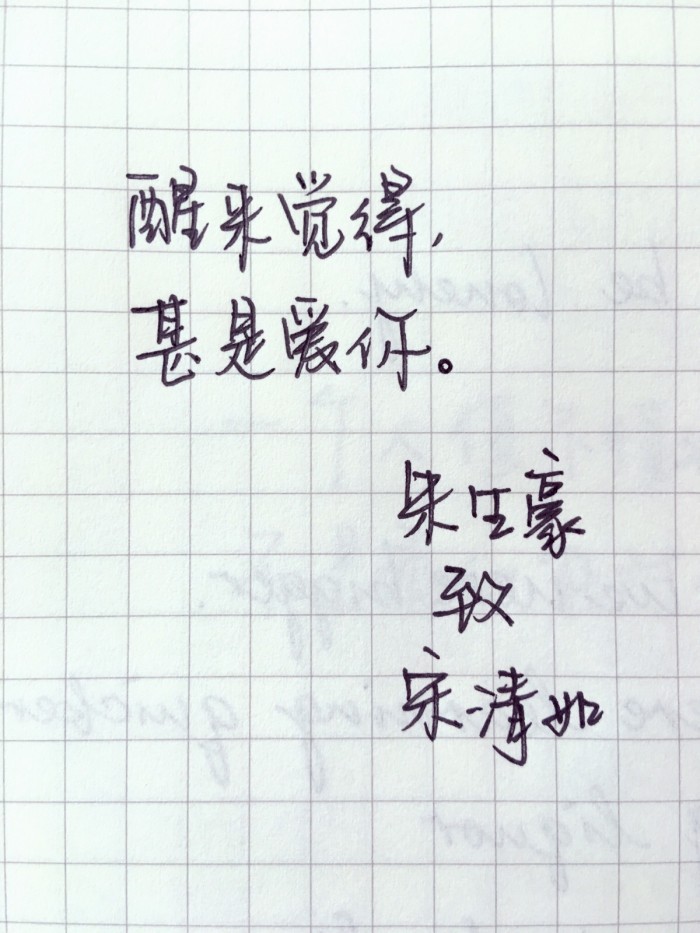 醒来觉得，
甚是爱你。
朱生豪
致
宋清如